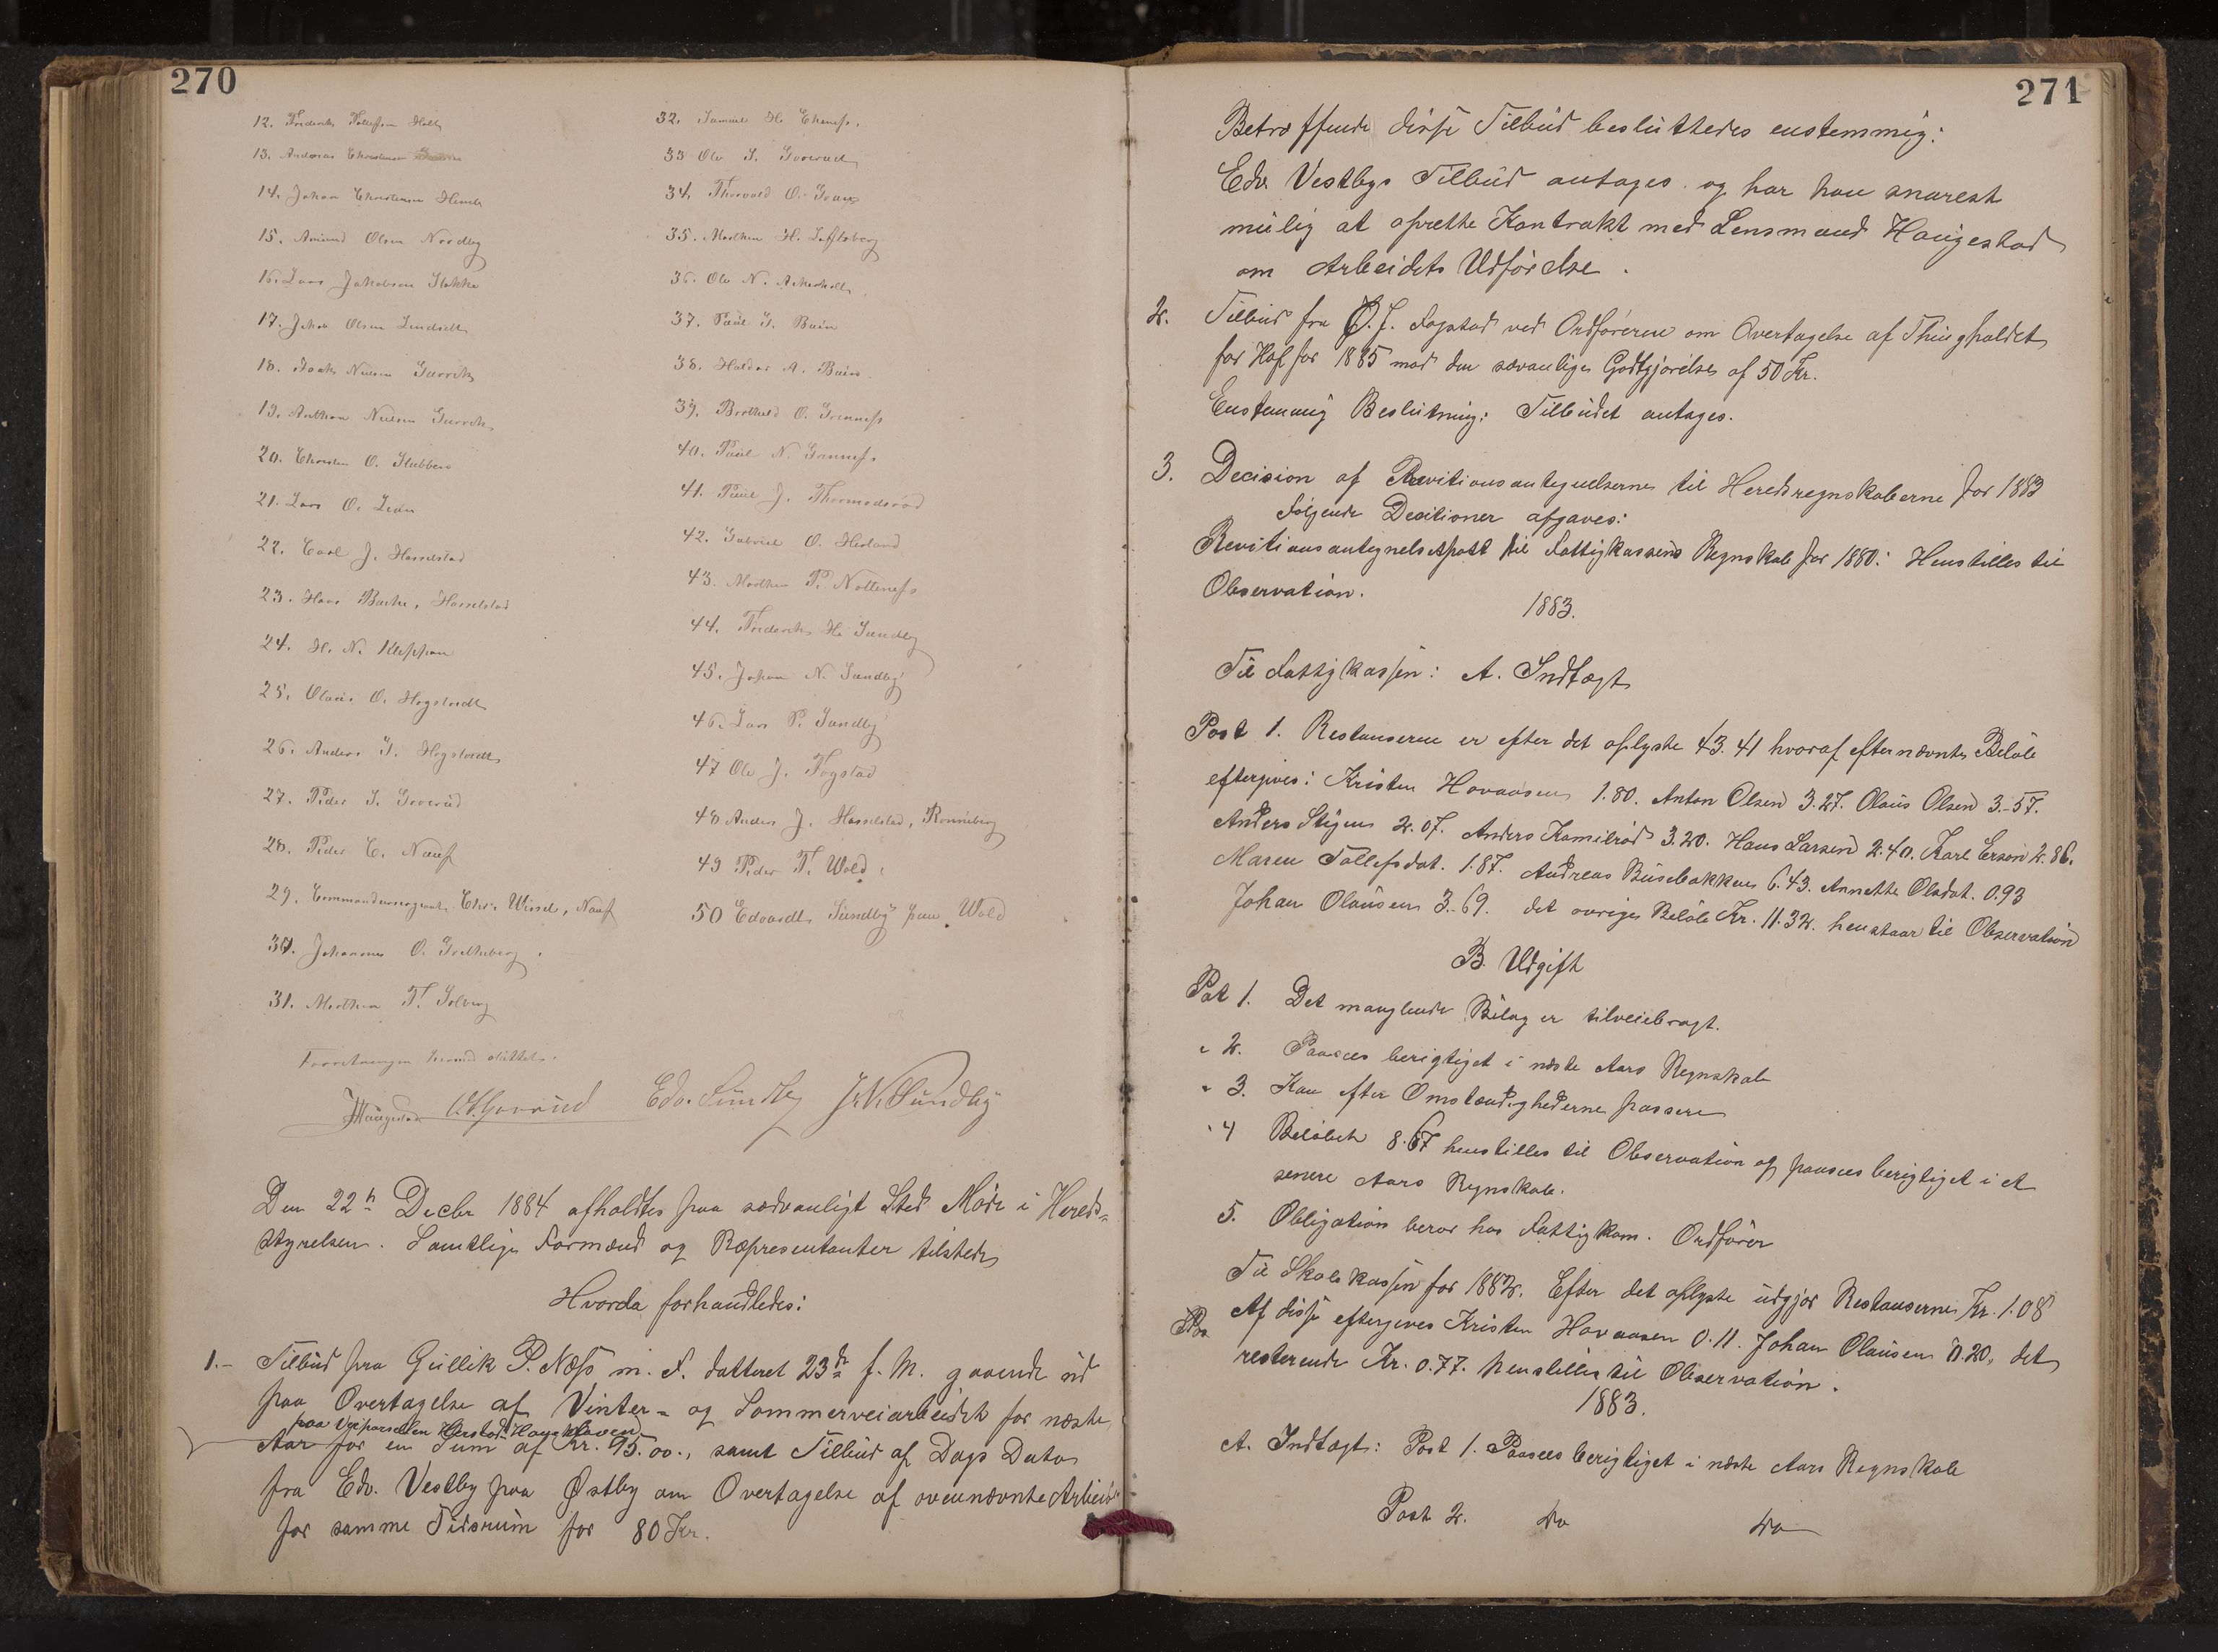 270
12. Frederik Tollefsen Holt
13. Andreas Christensen
14. Johan Christensen
15. Amund Olsen Nordby
16. Lars Jakobsen Stokke
17. Olsen
18. Isak Nielsen Gurrik
19. Anthon Nielsen Gurrik
20. Christen O. Stubberø
21. Lars O.
22. Carl J. Hasselstad
23. Hans Bache, Hasselstad
24. H. N. Kleppan
25. Olaus O. Hogstvedt
26. Anders T. Hogstvedt
27. Peder S. Goverud
28. Peder C. Næss
29. Commandeursergeant Chr. Næss
30. Johannes O.
31. Morthen T. Solberg
32. Samuel H.
33 Ole S. Goverud
34. Thorvald O.
35. Morthen H.
36. Ole N.
37. Paul Buin
38. Halvor A. Buin
39. Berthold O. Grennes
40. Paul N. Grennes
41. Paul J. Thormodsrød
42. Gabriel O.
43. Morthen P. Nottenes
44. Frederik H. Sundby
45. Johan N. Sundby
46. Lars P. Sundby
47 Ole J. Fogstad
48 Anders J. Hasselstad, Rønneberg
49 Peder T. Wold
50 Edvardt Sundby paa Wold
Forretningen hermed sluttet.
Haugestad O. S. Goverud Edv. Sundby J. N. Sundby
Den 22de Decbr 1884 afholdtes paa sædvanligt Sted Møde i Hereds-
styrelsen. Samtlige Formænd og Repræsentanter tilstede
Hvorda forhandledes:
1.- Tilbud fra Gullik P. Næss m. F. datteret 23de f. M. gaaende ud
paa Overtagelse af Vinter- og Sommerveiarbeidet for næste
paa Veiparsellen
Aar for en Sum af Kr. 95.00., samt Tilbud af Dags Dato
fra Edv. Vestby paa Østby om Overtagelse af ovennævnte Arbeid
for samme Tidsrum for 80 Kr.
271
Betræffende disse Tilbud besluttedes enstemmig:
Edv. Vestbys Tilbud antages og har han snarest
mulig at oprette Kontrakt med Lensmand Haugestad
om Arbeidets Udførelse.
2. Tilbud fra O. J. Fogstad ved Ordføreren om Overtagelse af Thingholdet
for Hof for 1885 mod den sævanlige Godtgjørelse af 50 Kr.
Enstemmig Beslutning: Tilbudet antages.
3. Decision af Revitionsantegnelserne til Heredsregnskaberne for 1883
Følgende Decitioner afgaves:
Revitionsantegnelsespost til Fattigkassens Regnskab for 1880: Henstilles til
Observation.
1883.
Til Fattigkassen: A. Indtægt
Post 1. Restanserne er efter det oplyste 43.41 hvoraf efternævnte Beløb
eftergives: Kristen Hovaasen 1.80. Anton Olsen 3.27. Olaus Olsen 3.57.
Anders Stigen 2.07. Anders Kamilrød 3.20. Hans Larsen 2.40. Karl Ersen 2.86.
Maren Tollefsdat. 1.87. Andreas Busebakken 6.43. Annette Olsdat. 0.93
Johan Olausen 3.69. det øvrige Beløb Kr. 11.32. henstaar til Observation
B. Udgift
Pot 1. Det manglende Bilag er tilveiebragt.
" 2. Paasees berigtiget i næste Aars Regnskab
" 3. Kan efter Omstændighederne passere
" 4 Beløbet 8.67 henstilles til Observation og paasees berigtiget i et
senere Aars Regnskab.
5. Obligation beror hos Fattigkom. Ordfører
Til Skolekassen for 1882. Efter det oplyste udgjør Restanserne Kr. 1.08
Af disse eftergives Kristen Hovaasen 0.11. Johan Olausen 0.20, det
resterende Kr. 0.77. henstilles til Observation.
1883.
A. Indtægt: Post 1. Paasees berigtiget i næste Aars Regnskab
Post 2. do do